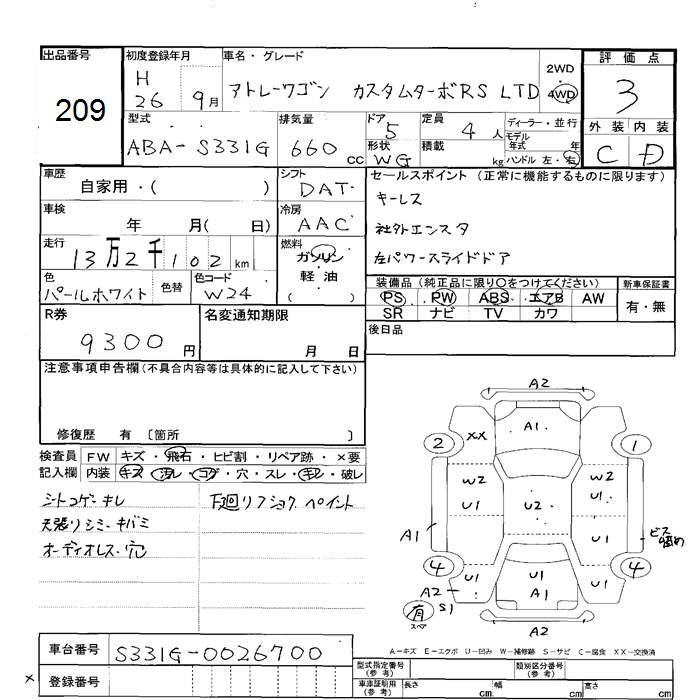 出品番号 初度登録年月 車名・グレード 評価点
209
H 26 9月 アトレーワゴン カスタムターボRS LTD 2WD 4WD 3
型式 排気量 ドア 定員 ディーラー・並行 外装 内装
ABA-S331G 660cc 5 4人 モデル年式 年 C D
形状 WG 積載 kg ハンドル 左・右
車歴 シフト セールスポイント (正常に機能するものに限ります)
自家用・( ) DAT
キーレス
車検 冷房
年 月( 日) AAC
社外エンスタ
走行 燃料
13万2千102km ガソリン 軽油 ( )
左パワースライドドア
色 色替 色コード
パールホワイト W24
装備品 (純正品に限り○をつけてください) 新車保証書
PS PW ABS エアB AW 有・無
SR ナビ TV カワ
R券 名変通知期限 後日品
9300円 月 日
注意事項申告欄(不具合内容等は具体的に記入して下さい)
修復歴 有 〔箇所 〕
検査員記入欄 FW キズ・飛石・ヒビ割・リペア跡・×要
内装 キズ・汚レ・コゲ・穴・スレ・キレ・破レ
シートコゲ・キレ 下廻リフショク ペイント
天張リシミ・キバミ
オーディオレス・穴
A2
A1
XX
2 1
W2 W2
U1 U2 U1
A1 U1 ビス留め
4 4
U1 U1 U1
A2 A1
S1
有 スペア
A2
A-キズ E-エクボ U-凹み W-補修跡 S-サビ C-腐食 XX-交換済
車台番号 S331G-0026700
型式指定番号(参考) 類別区分番号(参考)
× 登録番号
車庫証明用(参考) 長さ cm 幅 cm 高さ cm